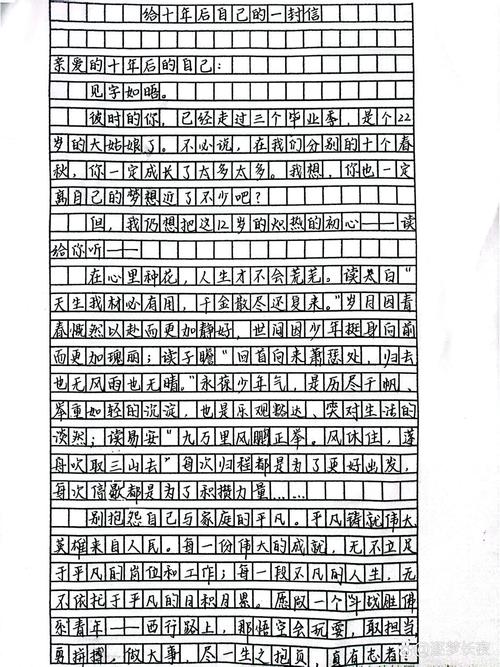 给十年后自己的一封信
亲爱的十年后的自己：
见字如晤。
彼时的你，已经走过三个毕业季，是个22
岁的大姑娘了。不必说，在我们分别的十个春
秋，你一定成长了太多太多。我想，你也一定
离自己的梦想近了不少吧？
但，我仍想把这12岁的炽热的初心——读
给你听——
在心里种花，人生才不会荒芜。读太白“
天生我材必有用，千金散尽还复来。”岁月因青
春慨然以赴而更加静好，世间因少年挺身向前
而更加瑰丽；读子瞻“回首向来萧瑟处，归去
也无风雨也无晴。”永葆少年气，是历尽千帆、
举重如轻的沉淀，也是乐观豁达、笑对生活的
淡然；读易安“九万里风鹏正举。风休住，蓬
舟吹取三山去”每次归程都是为了更好出发，
每次停歇都是为了积攒力量……
别抱怨自己与家庭的平凡。平凡铸就伟大，
英雄来自人民。每一份伟大的成就，无不立足
于平凡的岗位和工作；每一段不凡的人生，无
不依托于平凡的日积月累。愿做一个“斗战胜佛
系”青年——西行路上，那悟空会玩耍，敢担当
勇拼搏，做大事，尽一生之抱负，真有志者